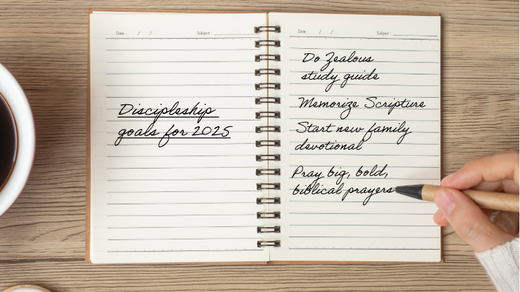 Date / / Subject
Discipleship
goals for 2025
Date / / Subject
Do Zealous
study guide
Memorize Scripture
Start new family
devotional
Pray big, bold,
biblical prayers